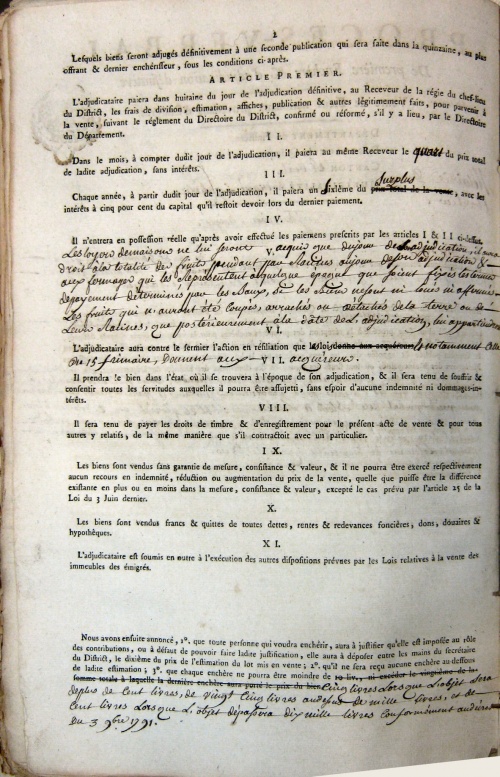 2
Lesquels biens seront adjugés définitivement à une seconde publication qui sera faite dans la quinzaine, au plus
offrant & dernier enchérisseur, sous les conditions ci-après.
ARTICLE PREMIER.
L'adjudicataire paiera dans huitaine du jour de l'adjudication définitive, au Receveur de la régie du chef-lieu
du District, les frais de division, estimation, affiches, publication & autres légitimement faits, pour parvenir à
la vente, suivant le réglement du Directoire du District, confirmé ou réformé, s'il y a lieu, par le Directoire
du Département.
II.
Dans le mois, à compter dudit jour de l'adjudication, il paiera au même Receveur le quart du prix total
de ladite adjudication, sans intérêts.
III.
surplus
Chaque année, à partir dudit jour de l'adjudication, il paiera un sixième du prix total de la vente, avec les
intérêts à cinq pour cent du capital qu'il restoit devoir lors du dernier paiement.
IV.
Il n'entrera en possession réelle qu'après avoir effectué les paiemens prescrits par les articles I & II ci-dessus.
Les loyers de maisons ne lui seront acquis que du jour de l'adjudication, il aura
V.
droit à la totalité des fruits pendant par racines au jour de son adjudication &
aux fermages qui les représentent a quelque époque que soient fixés les termes
de payement déterminés par les baux, si les biens ne sont ni loués ni affermés
Les fruits qui n'auront été coupés, arrachés ou détachés de la terre ou de
Leurs Racines, que postérieurement à la date de L'adjudication, lui appartiendront
VI.
L'adjudicataire aura contre le fermier l'action en résiliation que les lois donne aux acquéreurs & notamment celle
du 15 frimaire, donnent aux acquéreurs.
VII.
Il prendra le bien dans l'état, où il se trouvera à l'époque de son adjudication, & il sera tenu de souffrir &
consentir toutes les servitudes auxquelles il pourra être assujetti, sans espoir d'aucune indemnité ni dommages-in-
térêts.
VIII.
Il sera tenu de payer les droits de timbre & d'enregistrement pour le présent acte de vente & pour tous
autres y relatifs, de la même manière que s'il contractoit avec un particulier.
IX.
Les biens sont vendus sans garantie de mesure, consistance & valeur, & il ne pourra être exercé respectivement
aucun recours en indemnité, réduction ou augmentation du prix de la vente, quelle que puisse être la différence
existante en plus ou en moins dans la mesure, consistance & valeur, excepté le cas prévu par l'article 25 de la
Loi du 3 Juin dernier.
X.
Les biens sont vendus francs & quittes de toutes dettes, rentes & redevances foncières, dons, douaires &
hypothèques.
XI.
L'adjudicataire est soumis en outre à l'exécution des autres dispositions prévues par les Lois relatives à la vente des
immeubles des émigrés.
Nous avons ensuite annoncé, 1°. que toute personne qui voudra enchérir, aura à justifier qu'elle est imposée au rôle
des contributions, ou à défaut de pouvoir faire ladite justification, elle aura à déposer entre les mains du secrétaire
du District, le dixième du prix de l'estimation du lot mis en vente ; 2°. qu'il ne sera reçu aucune enchère au-dessous
de ladite estimation ; 3°. que chaque enchère ne pourra être moindre de 10 liv., ni excéder le vingtième de la
somme totale à laquelle la dernière enchère aura porté le prix du bien Cinq livres Lorsque L'objet sera
de plus de Cent livres, de vingt Cinq livres au dessus de mille livres, et de
Cent livres Lorsque L'objet dépassera dix mille livres Conformément au décret
du 3 9bre 1791.